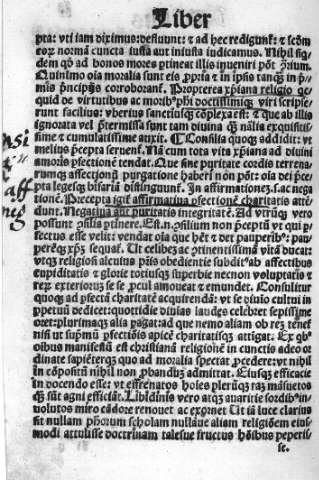 Liber
pta: vti iam diximus: desiuunt: ⁊ ad hec redigunt̃: ⁊ scd̃m
eoꝝ normã cuncta iusta aut iniusta iudicamus. Nihil siq̃
dem qd̃ ad bonos mores ptineat illis inueniri pōt
Quinimo oia moralia sunt eis ꝓpria ⁊ in ipsis tanq̃ in p̃
mis p̃ncipijs corroborant̃. Propterea xp̃iana religio qc
quid de virtutibus ac morib⁹ phi doctissimiq̨ viri scripse
runt facilius: vberius sanctiusq̨ cõplexa est: ⁊ que ab illis
ignorata vel p̃termissa sunt tam diuina q̃ nãlia exquisitis
sime ⁊ cumulatissime auxit. ¶ Consilia quoqs addidit: vt
melius p̃cepta seruent̃. Nã cum tota vita xp̃iana ad diuini
amoris pfectionẽ tendat. Que sine puritate cordis terrena
rumq̨ affectionũ purgatione haberi non pōt: oia dei p̃ce
pta legesq̨ bifariã distinguunt̃. In affirmationez .s. ac nega
tionẽ. Precepta igit̃ affirmatiua pfectionẽ charitatis attẽ
dunt. Negatiua aut puritatis integritatẽ. Ad vtrũq̨ vero
possunt ꝯsilia ptinere. Est .n. ꝯsilium non p̃ceptũ vt qui p
fectus esse velit: vendat oia que hẽt ⁊ det pauperib⁹: pau
perẽq̨ xp̃m sequat̃. Ut celibez ac ꝯtinentissimã vitã ducat:
vtq̨ religiõi alicuius pijs obedientie subditus ab affectibus
cupiditatis ⁊ glorie totiusq̨ superbie necnon voluptatũ ⁊
reꝝ exterioruz se se procul amoueat ⁊ emundet. Consulitur
quoq̨ ad pfectã charitatẽ acquirendã: vt se diuio cultui in
perpetuũ dedicet: quottidie diuias laudes celebret sepissime
oret: plurimaq̨ alia pagat: ad que nemo aliam ob rez tenet̃
nisi vt supmũ pfectiõis apicẽ charitatisq̨ attigat. Ex qb⁹
oibus manifestũ est christianã religionẽ in cunctis adeo or
dinate sapiẽterq̨ quo ad moralia spectat pcedere: vt nihil
in cõpositũ nihil non ꝓbandũz admittat. Eiusq̨ efficacie
in docendo esse: vt effrenatos hoies plerũq̨ raz mãsuetos
q̨ sũt agni efficiãt. Libidinis vero atq̨ auaritie sordib⁹ in-
uolutos miro cãdore renouet ac exornet Ut iã luce clarius
sit nullam phorum scholam nullãue aliam religiõem eius-
modi attulisse doctrinam talesue fructus hoibus peperis-
se.
nsi
aff
neg